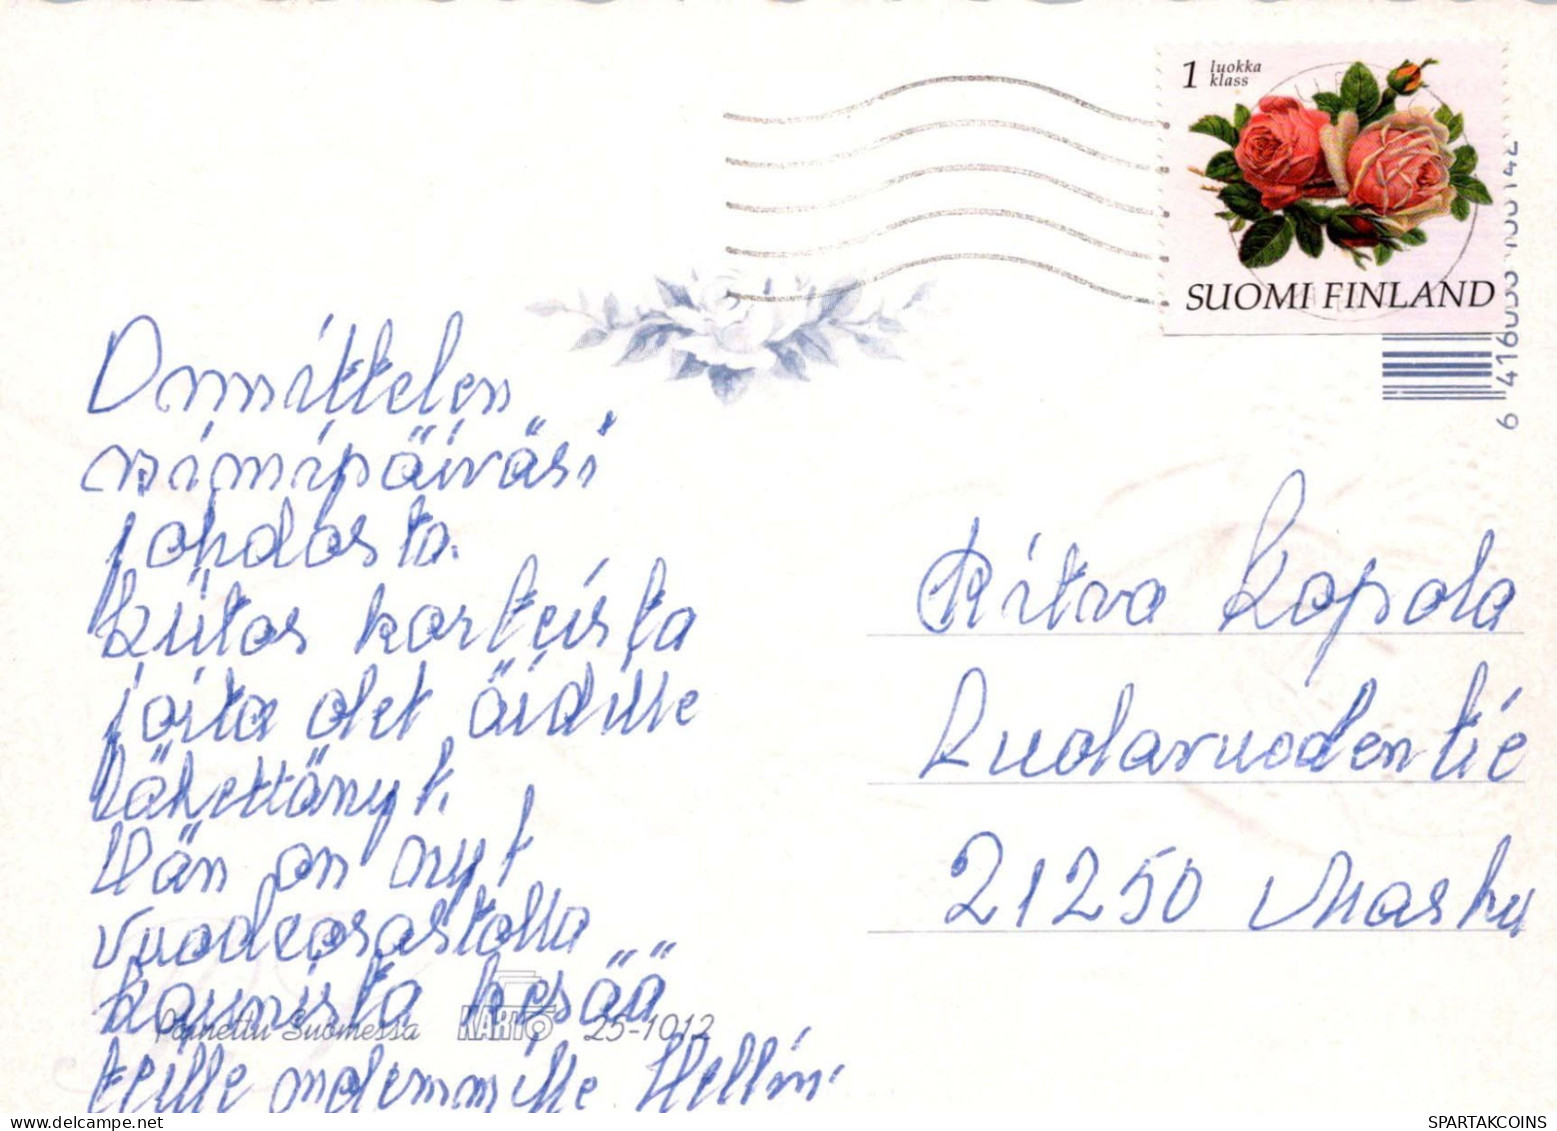 1 luokka
klass
SUOMI FINLAND
Onnittelen
nimipäiväsi
johdosta.
Kiitos korteista
joita olet äidille
lähettänyt.
Hän on nyt
vuodeosastolla
kaunista kesää
teille molemmille Hellin
Ritva Kopola
Ruolavuodentie
21250 Masku
Painettu Suomessa KARTO 25-1012
SPARTAKCOINS.COM